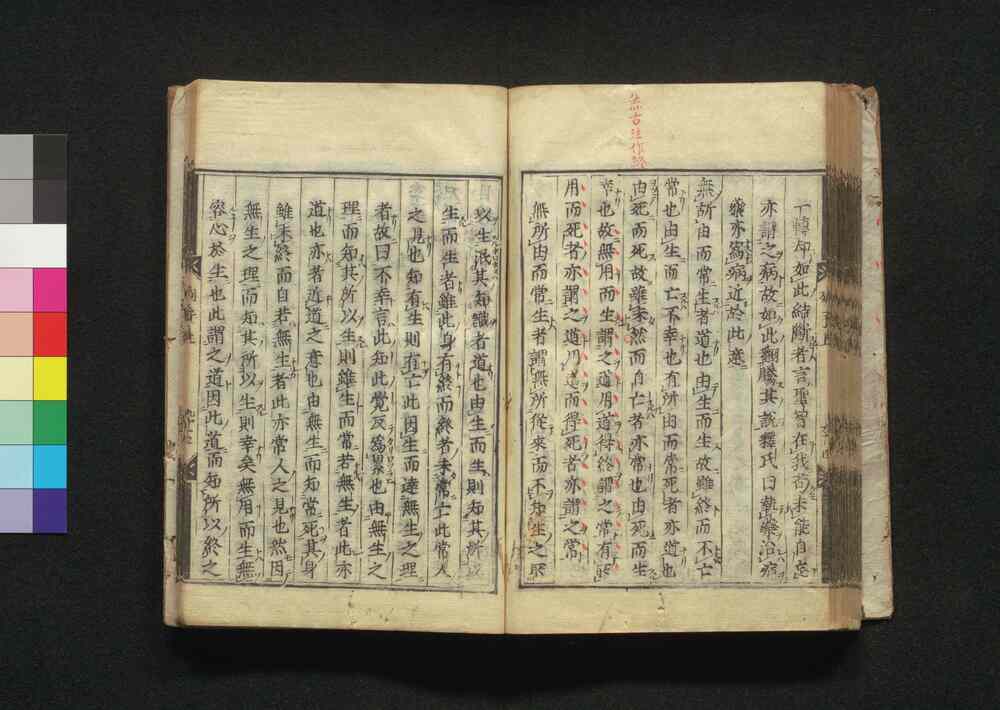 然古注作終
一轉却如此結斷者言聖智在我苟未能自忘
亦謂之病故如此翻騰其說釋氏曰執藥治病
藥亦為病近於此意
無所由而常生者道也由生而生故雖終而不亡
常也由生而亡不幸也有所由而常死者亦道也
由死而死故雖未然而自亡者亦常也由死而生
幸也故無用而生謂之道用道得終謂之常有所
用而死者亦謂之道用道而得死者亦謂之常
無所由而常生者謂無所從來而不知生之所
以生泯其知識者道也由生而生則知其所以
生而生者雖此身有終而終者未常亡此常人
之見也知有生則有亡此因生而達無生之理
者故曰不幸言此知此覺反為累也由無生之
理而知其所以生則雖生而常若無生者此亦
道也亦者近道之意也由無生而知常死其身
雖未終而自若無生者此亦常人之見也然因
無生之理而知其所以生則幸矣無用而生無
容心於生也此謂之道因此道而知所以終之